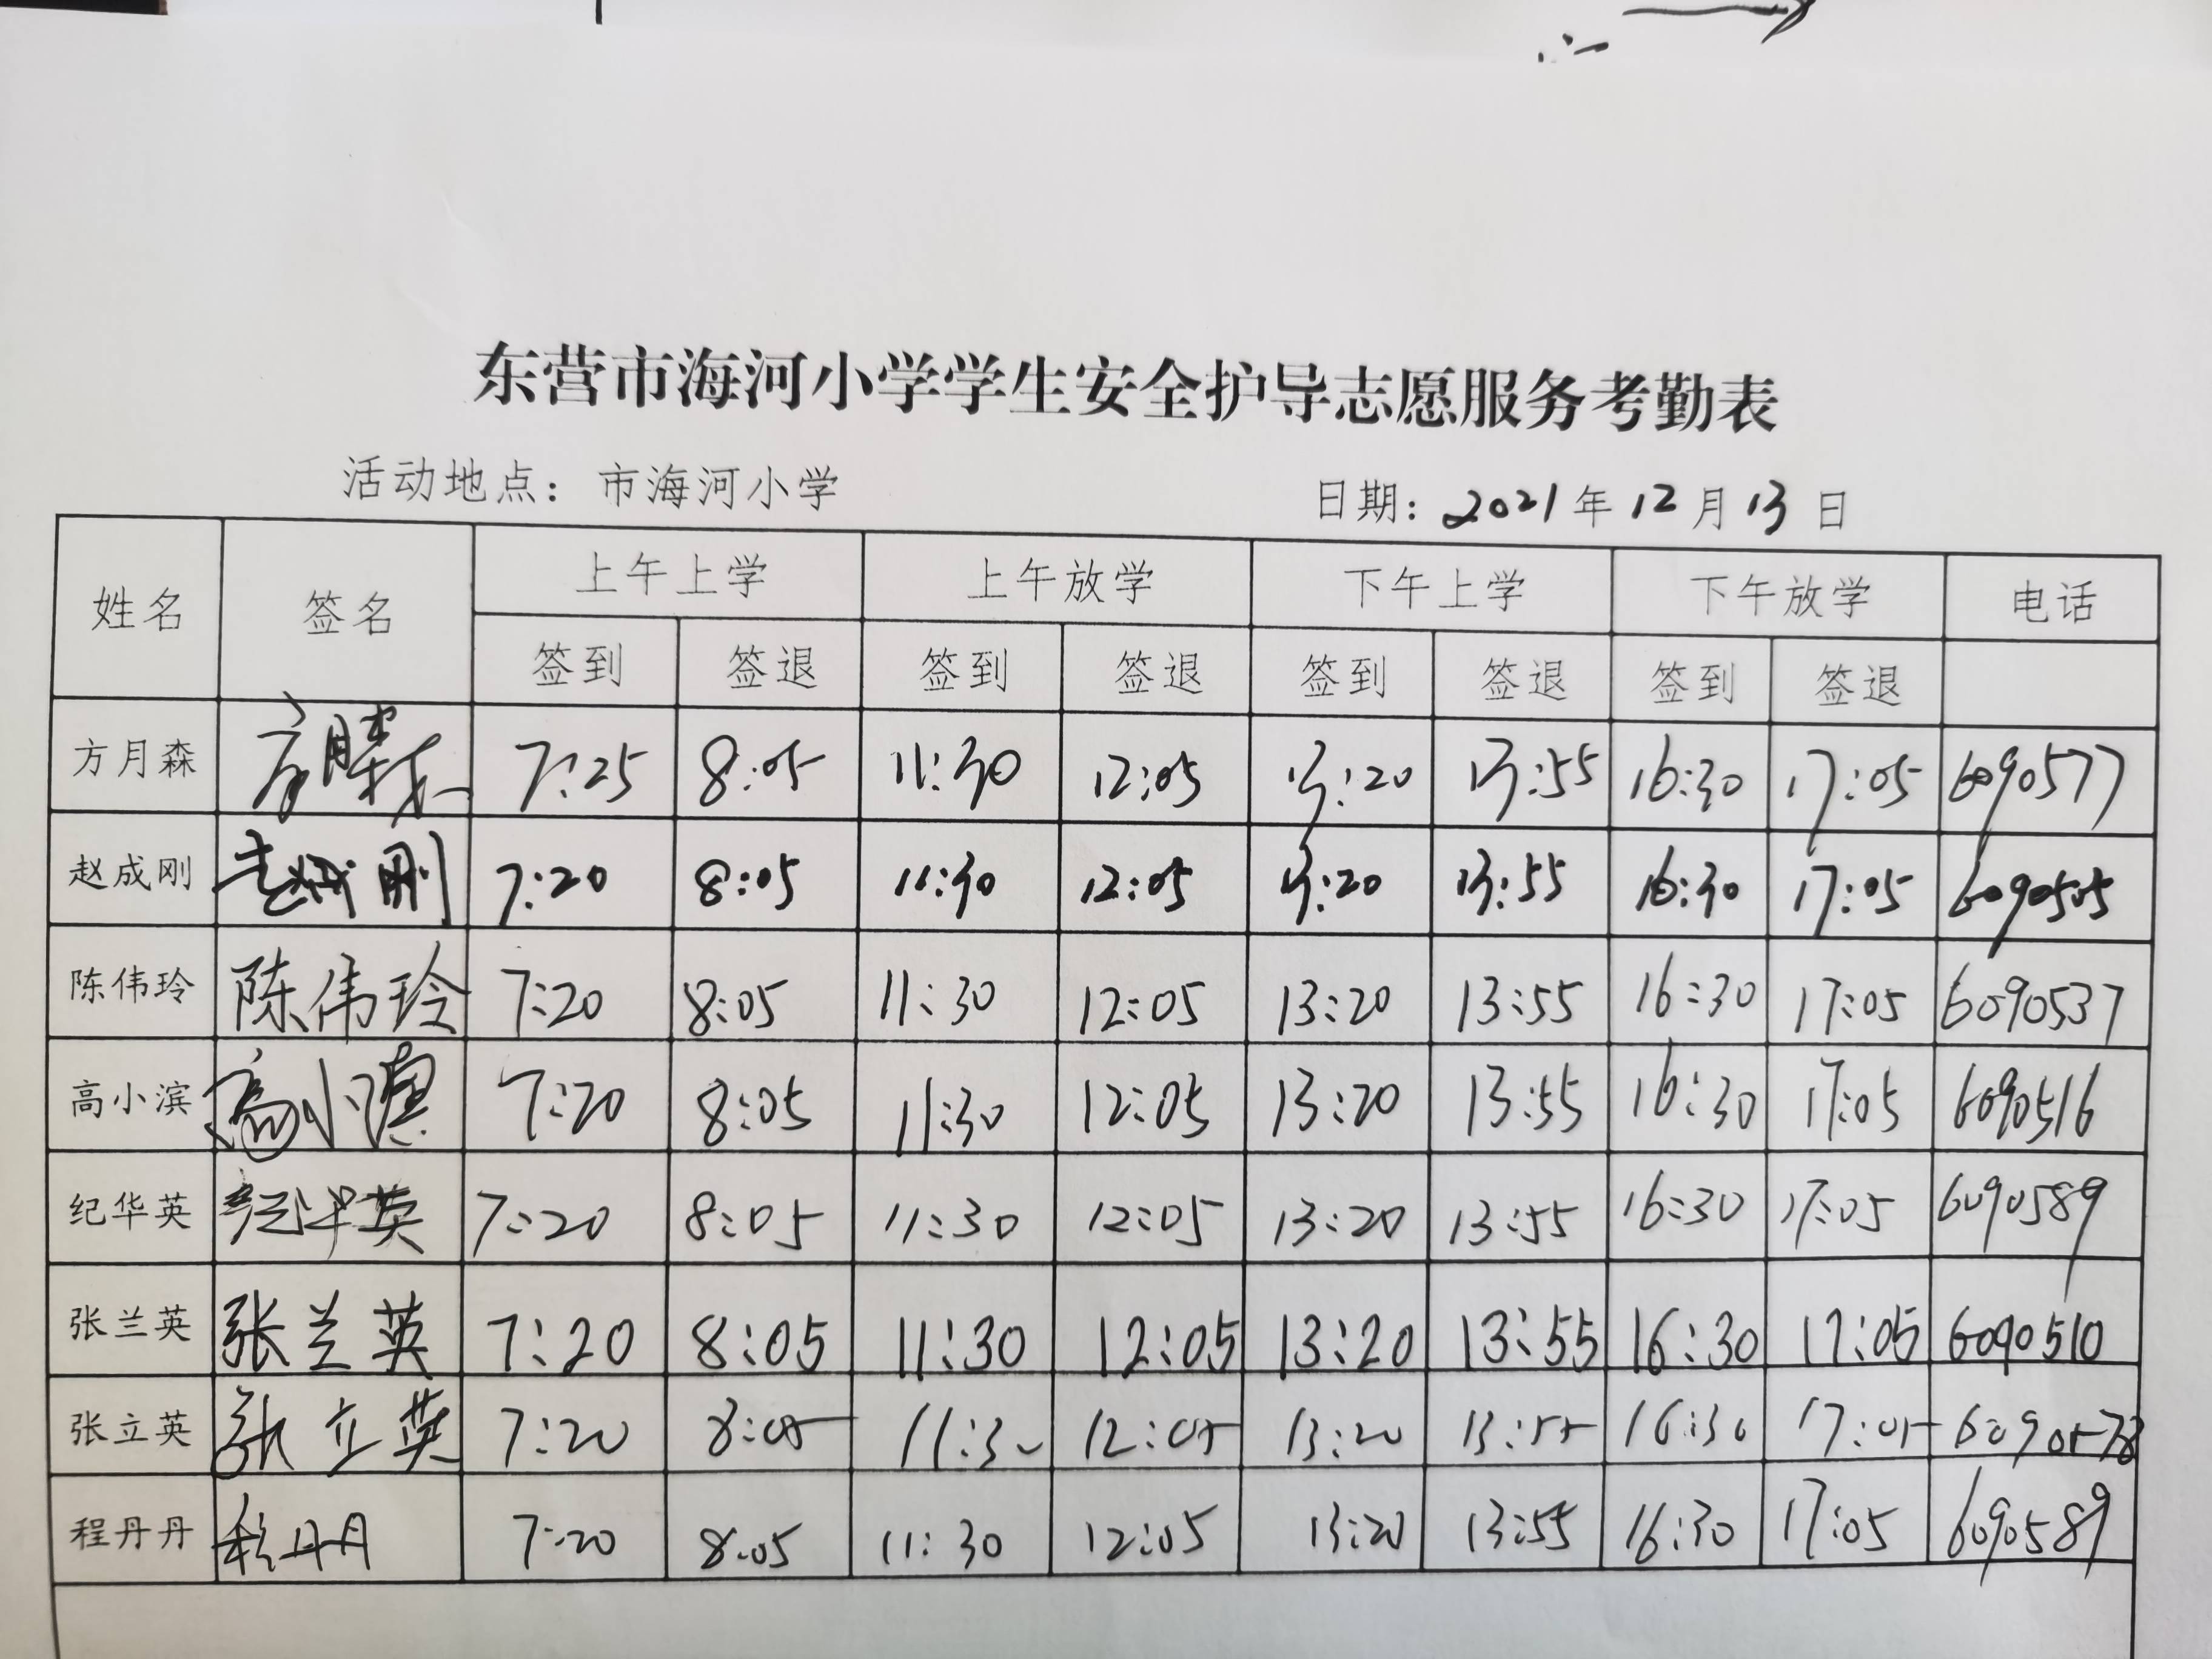 东营市海河小学学生安全护导志愿服务考勤表
活动地点：市海河小学 日期：2021年12月13日
姓名 签名 上午上学 上午放学 下午上学 下午放学 电话
签到 签退 签到 签退 签到 签退 签到 签退
方月森 方月森 7:25 8:05 11:30 12:05 13:20 13:55 16:30 17:05 6090577
赵成刚 赵成刚 7:20 8:05 11:30 12:05 13:20 13:55 16:30 17:05 6090505
陈伟玲 陈伟玲 7:20 8:05 11:30 12:05 13:20 13:55 16:30 17:05 6090537
高小滨 高小滨 7:20 8:05 11:30 12:05 13:20 13:55 16:30 17:05 6090516
纪华英 纪华英 7:20 8:05 11:30 12:05 13:20 13:55 16:30 17:05 6090589
张兰英 张兰英 7:20 8:05 11:30 12:05 13:20 13:55 16:30 17:05 6090510
张立英 张立英 7:20 8:05 11:30 12:05 13:20 13:55 16:30 17:05 6090578
程丹丹 程丹丹 7:20 8:05 11:30 12:05 13:20 13:55 16:30 17:05 6090589